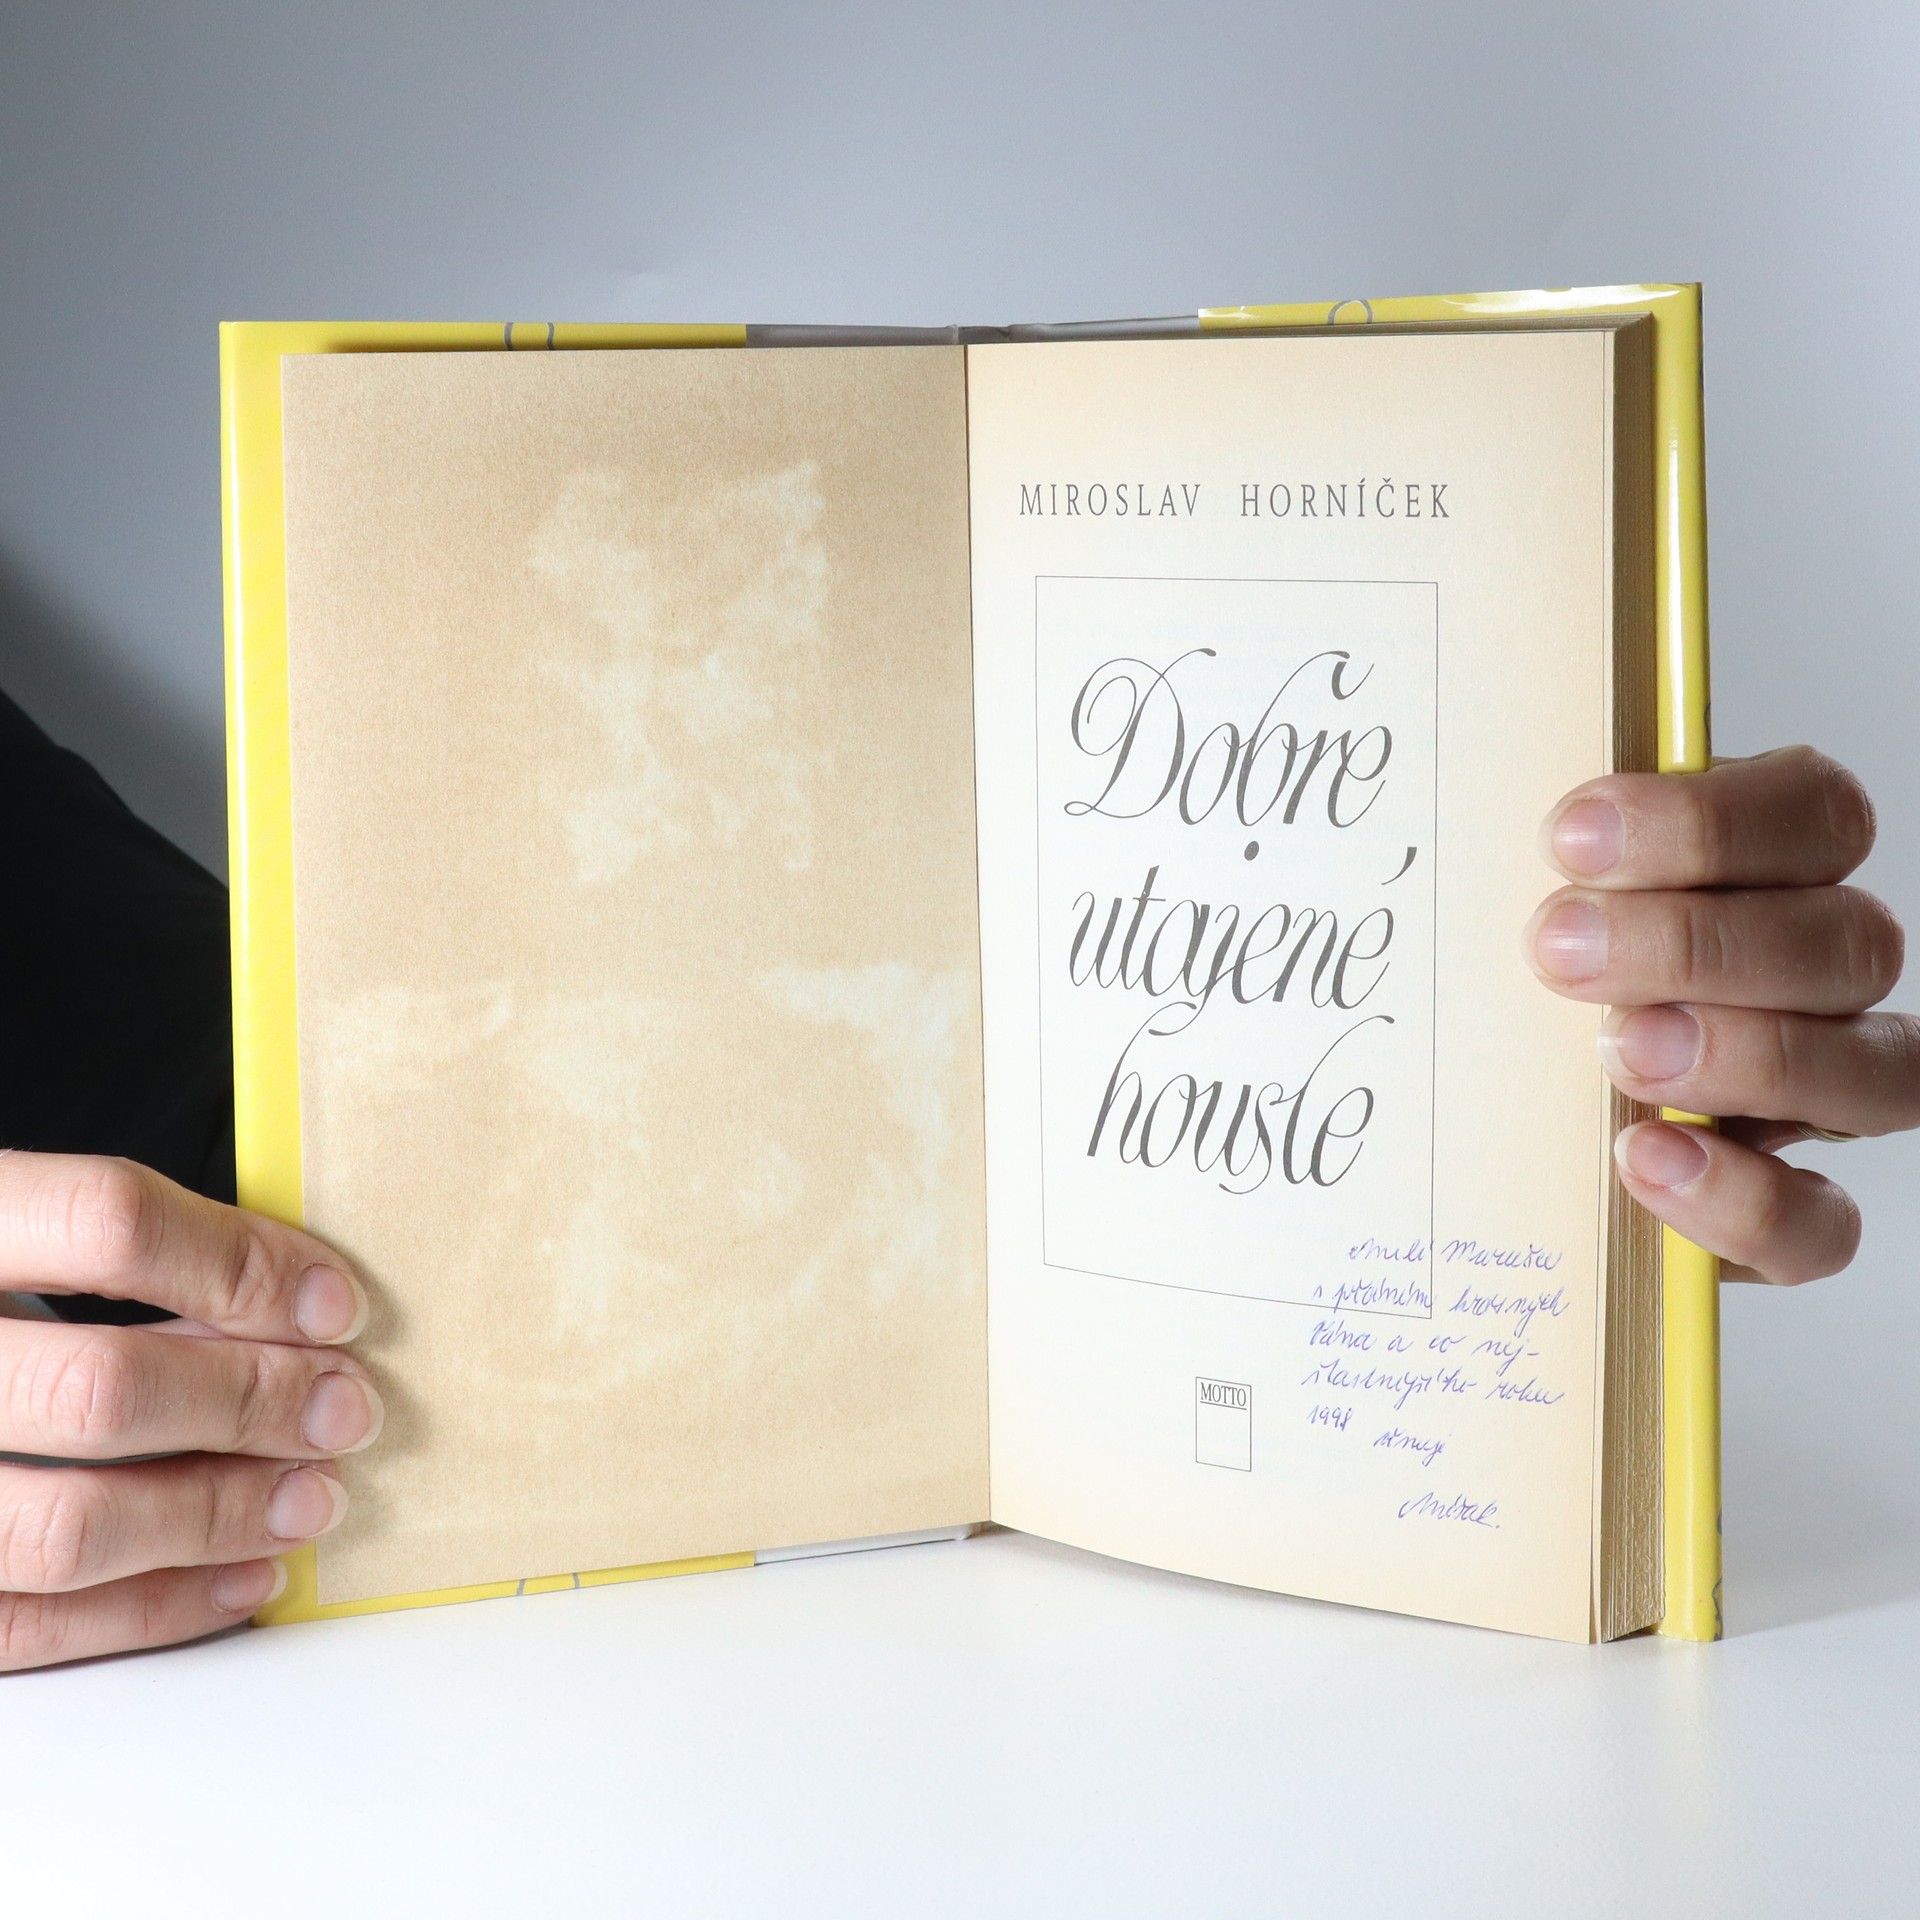 MIROSLAV HORNÍČEK
Dobře
utajené
housle
MOTTO
Milé Marušce
s přáním krásných
Vánoc a co nej-
šťastnějšího roku
1998 věnuje